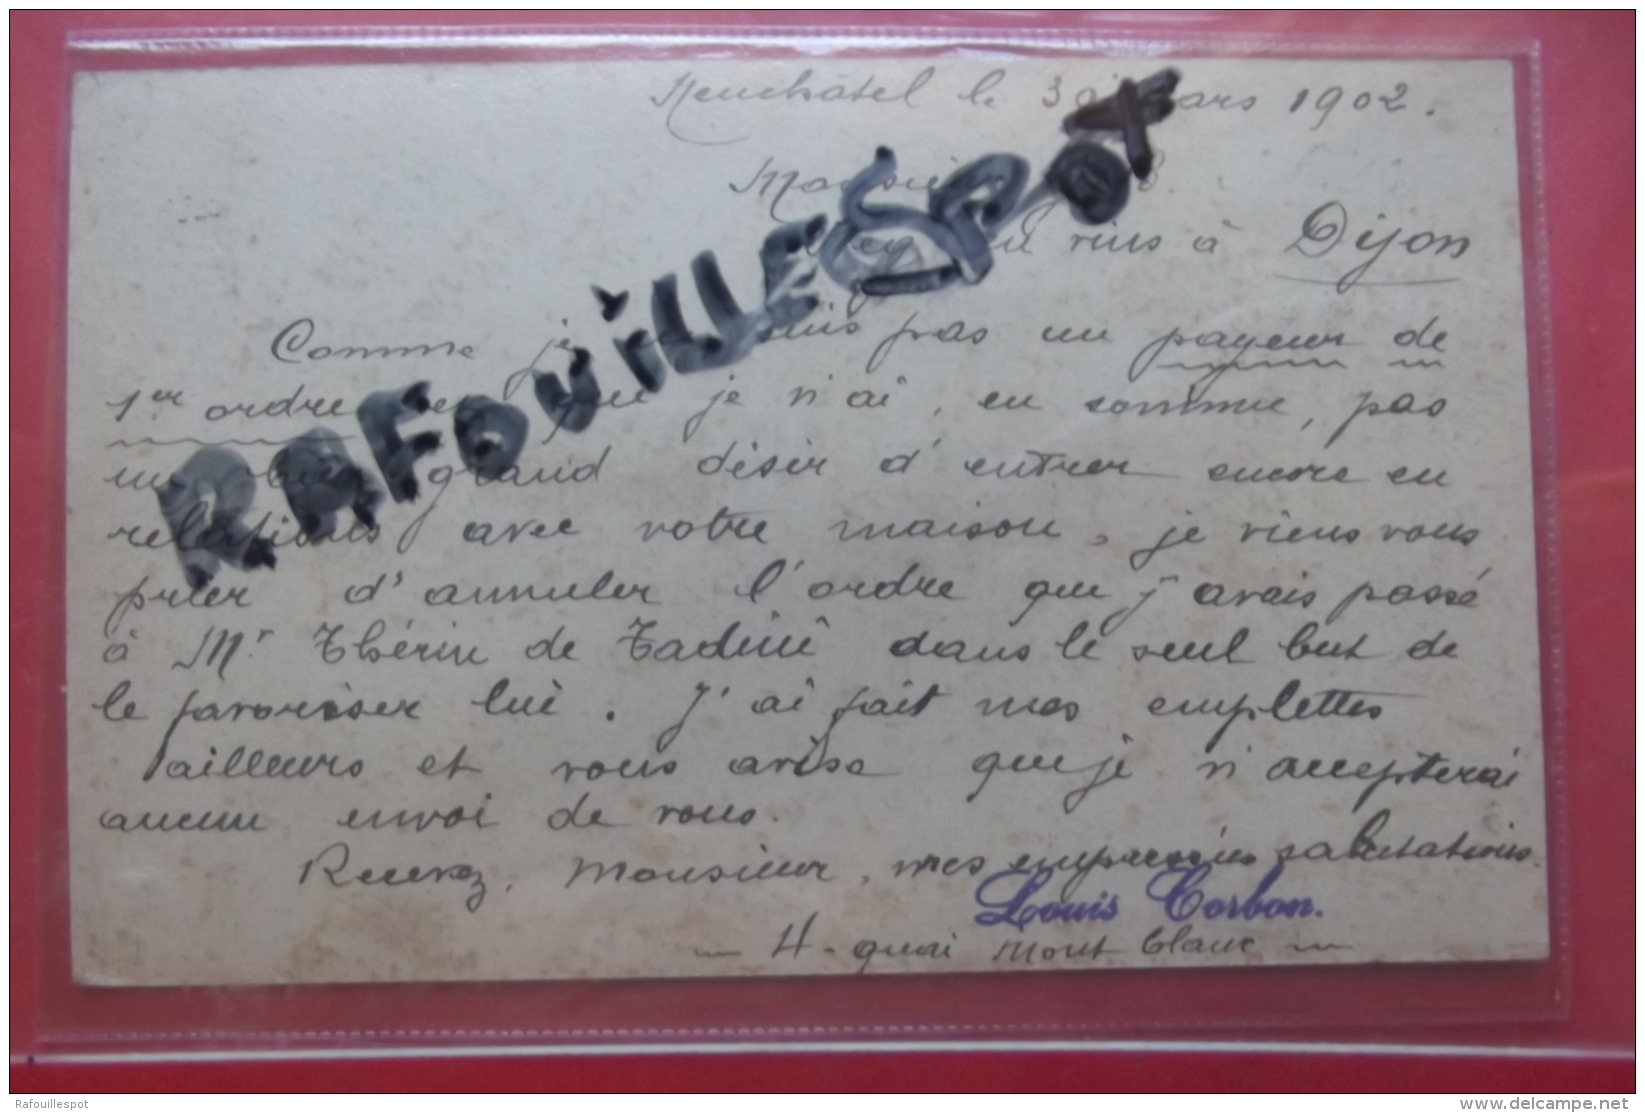 Neuchâtel le 30 Mars 1902.
Monsieur
vins à Dijon
Comme je ne suis pas un payeur de
1er ordre et que je n'ai, en somme, pas
un bien grand désir d'entrer encore en
relations avec votre maison, je viens vous
prier d'annuler l'ordre que j'avais passé
à Mr Thérin de Tadini dans le seul but de
le favoriser lui. J'ai fait mes emplettes
ailleurs et vous avise que je n'accepterai
aucun envoi de vous.
Recevez, Monsieur, mes empressées salutations.
Louis Corbon.
4 - quai Mont blanc
RAFOUILLESPOT
Rafouillespot
www.delcampe.net